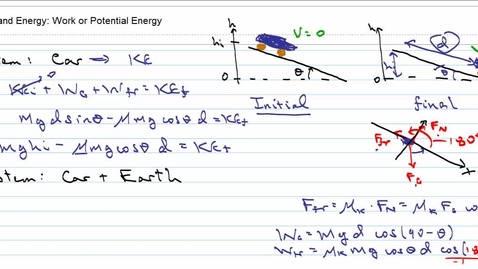 and Energy: Work or Potential Energy
Car → KE
KEi + WG + Wfr = KEf
Mg d sinθ - μmg cosθ d = KEf
mghi - μmg cosθ d = KEf
stem: Car + Earth
h
hi
0
V=0
θ
Initial
h
hi
0
d
θ
final
Ffr
FN
FG
x
180°
Ffr = μk · FN = μk FG co
WG = Mg d cos(90-θ)
Wfr = μk mg cosθ d cos(18
-1